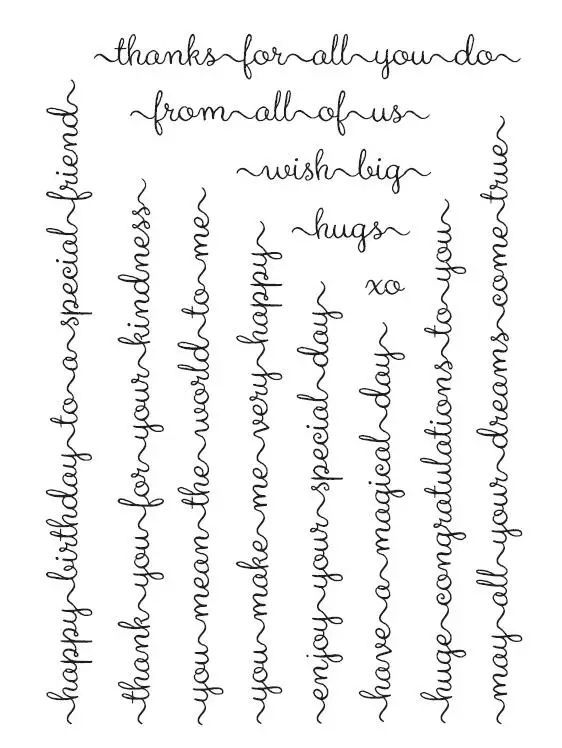 thanks for all you do
from all of us
wish big
hugs
xo
happy birthday to a special friend
thank you for your kindness
you mean the world to me
you make me very happy
enjoy your special day
have a magical day
huge congratulations to you
may all your dreams come true